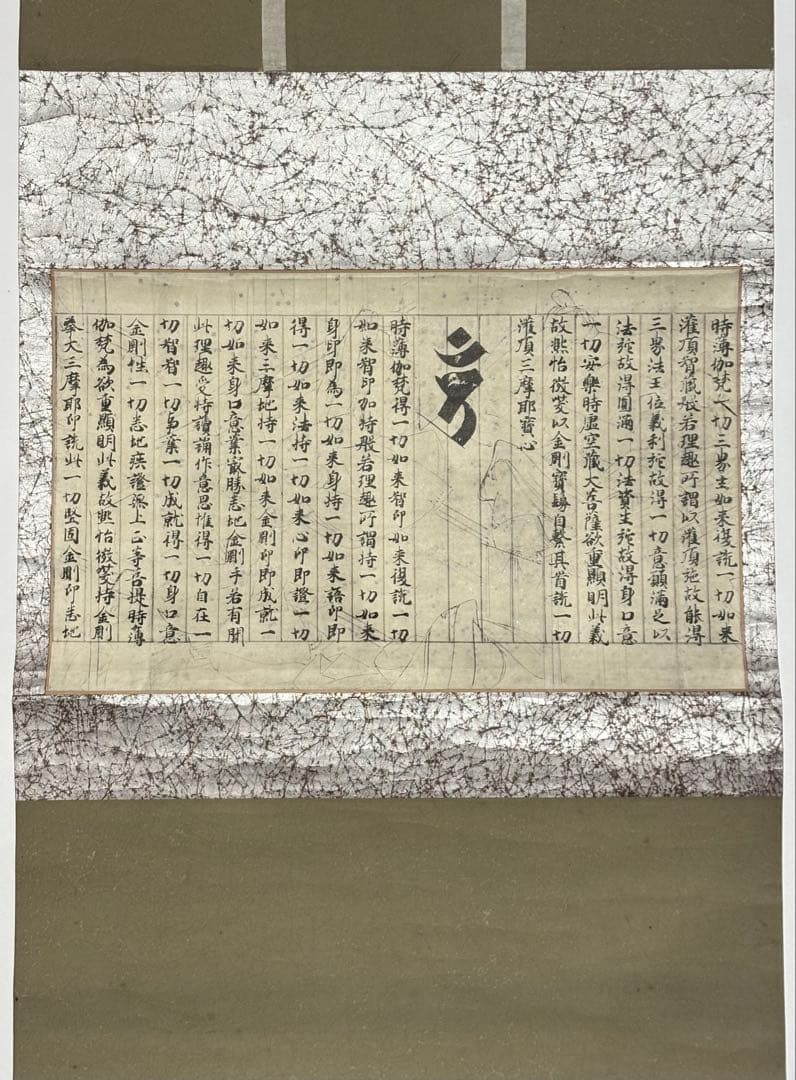 時薄伽梵一切三界主如来復説一切如来
灌頂智蔵般若理趣所謂以灌頂施故能得
三界法王位義利施故得一切意願満足以
法施故得圓満一切法資生施故得身口意
一切安樂時虚空蔵大菩薩欲重顯明此義
故熙怡微笑以金剛寶鬘自繫其首説一切
灌頂三摩耶寶心
時薄伽梵得一切如来智印如来復説一切
如来智印加持般若理趣所謂持一切如来
身印即為一切如来身持一切如来語印即
得一切如来法持一切如来心印即證一切
如来三摩地持一切如来金剛印即成就一
切如来身口意業最勝悉地金剛手若有聞
此理趣受持讀誦作意思惟得一切自在一
切智智一切事業一切成就得一切身口意
金剛性一切悉地疾證無上正等菩提時薄
伽梵為欲重顯明此義故熙怡微笑持金剛
拳大三摩耶印説此一切堅固金剛印悉地